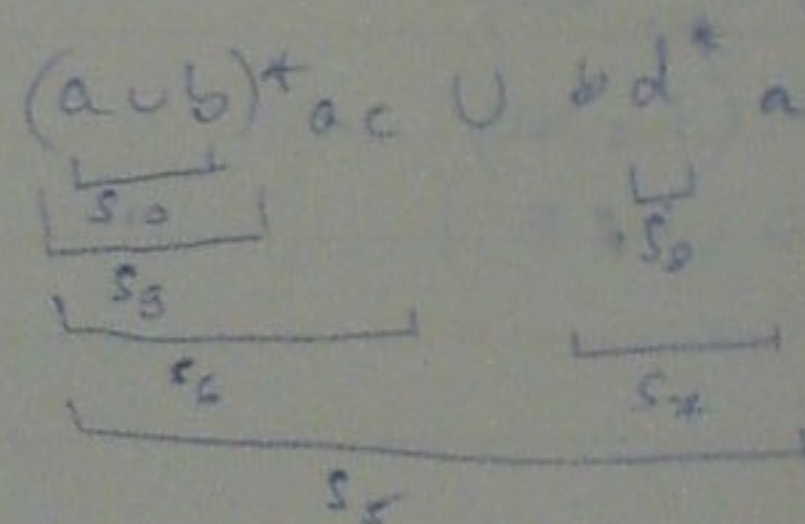 (a ∪ b)* a c ∪ b d* a
S10
S8
S9
S6
S7
S5